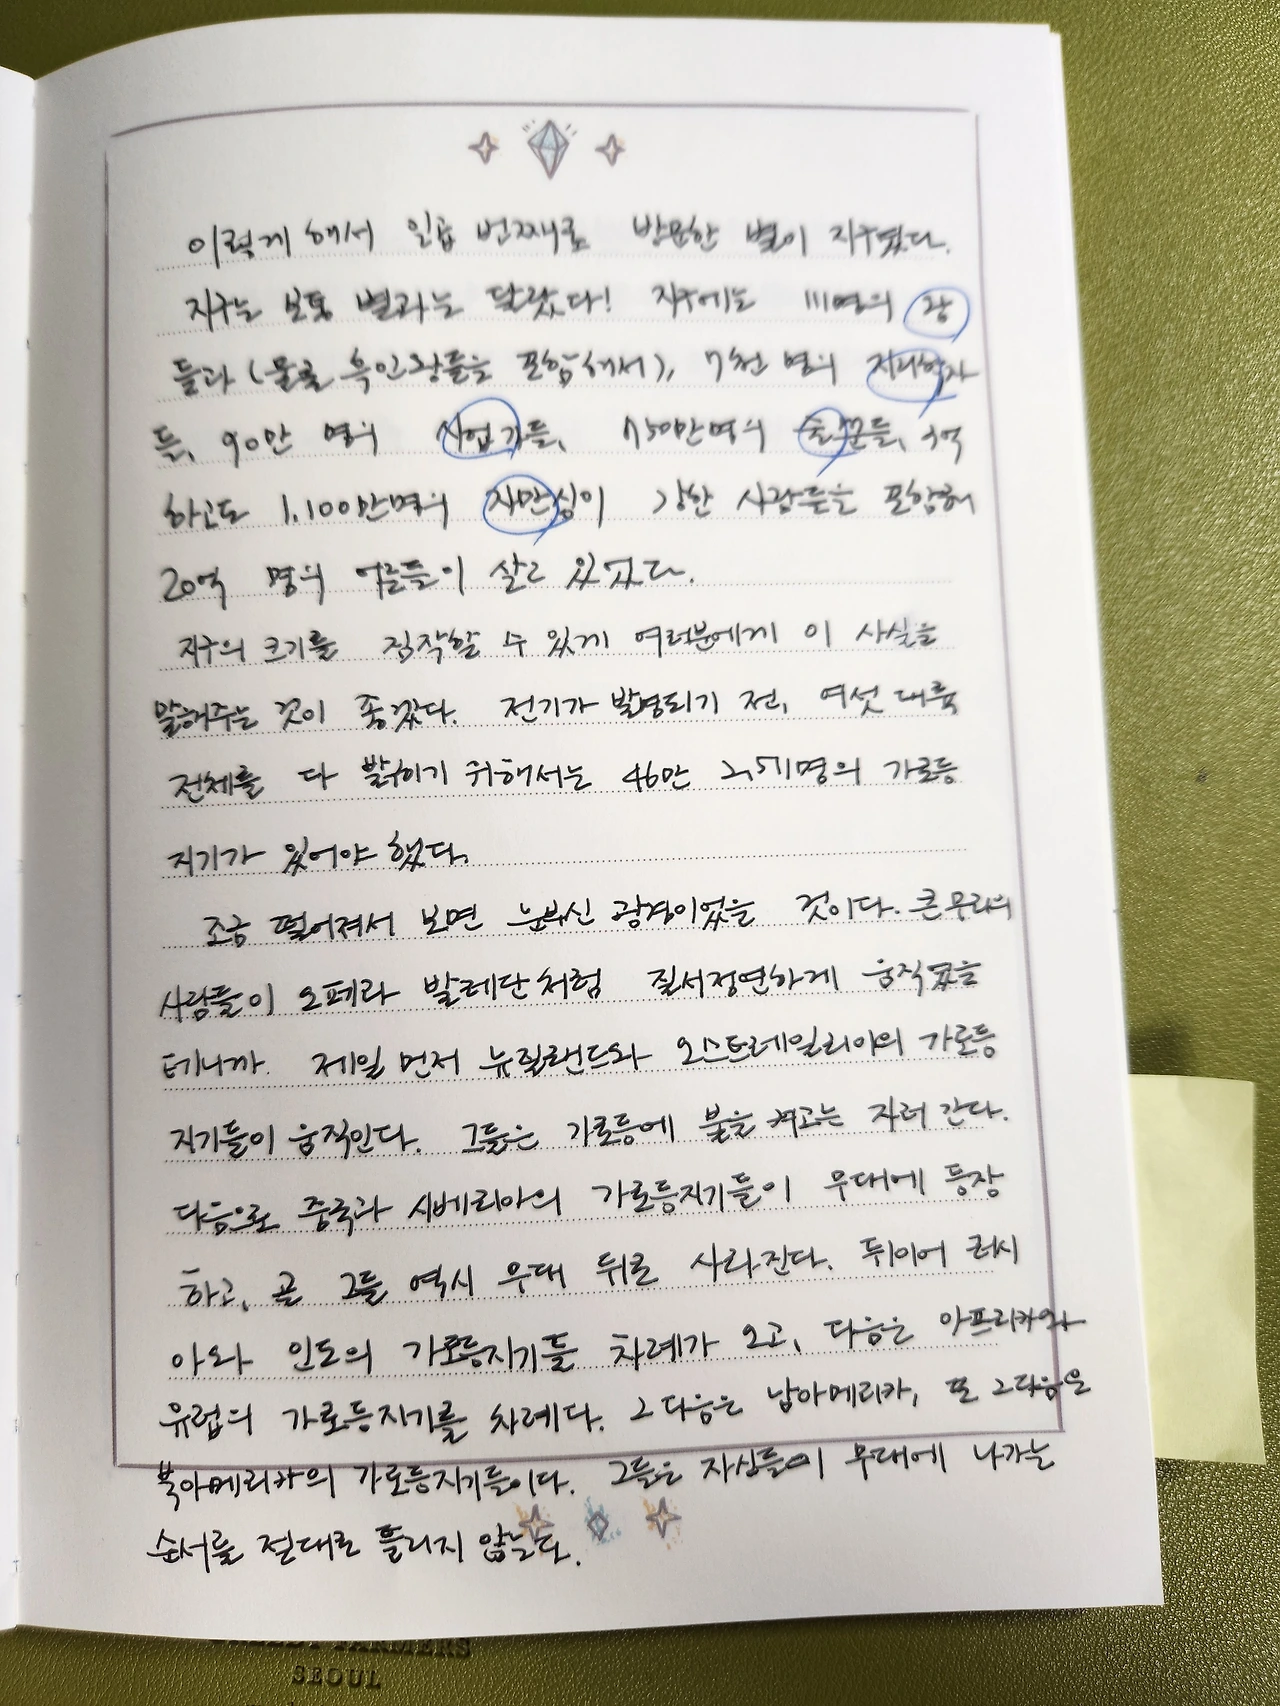 이렇게 해서 일곱 번째로 방문한 별이 지구였다.
지구는 보통 별과는 달랐다! 지구에는 111명의 왕
들과 (물론 흑인왕들을 포함해서), 7천 명의 지리학자
들, 90만 명의 사업가들, 750만명의 술꾼들, 3억
하고도 1,100만명의 자만심이 강한 사람들을 포함해
20억 명의 어른들이 살고 있었다.
지구의 크기를 짐작할 수 있게 여러분에게 이 사실을
말해주는 것이 좋겠다. 전기가 발명되기 전, 여섯 대륙
전체를 다 밝히기 위해서는 46만 2,511명의 가로등
지기가 있어야 했다.
조금 떨어져서 보면 눈부신 광경이었을 것이다. 큰 무리의
사람들이 오페라 발레단처럼 질서정연하게 움직였을
테니까. 제일 먼저 뉴질랜드와 오스트레일리아의 가로등
지기들이 움직인다. 그들은 가로등에 불을 켜고는 자러 간다.
다음으로 중국과 시베리아의 가로등지기들이 무대에 등장
하고, 곧 그들 역시 무대 뒤로 사라진다. 뒤이어 러시
아와 인도의 가로등지기들 차례가 오고, 다음은 아프리카와
유럽의 가로등지기를 차례다. 그 다음은 남아메리카, 또 그다음은
북아메리카의 가로등지기들이다. 그들은 자신들이 무대에 나가는
순서를 절대로 틀리지 않는다.
FARMERS
SEOUL